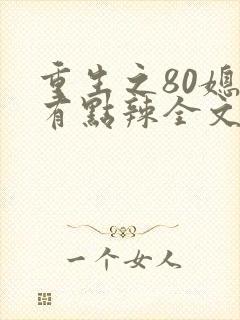 重生之80媳
有點辣全文
一个女人